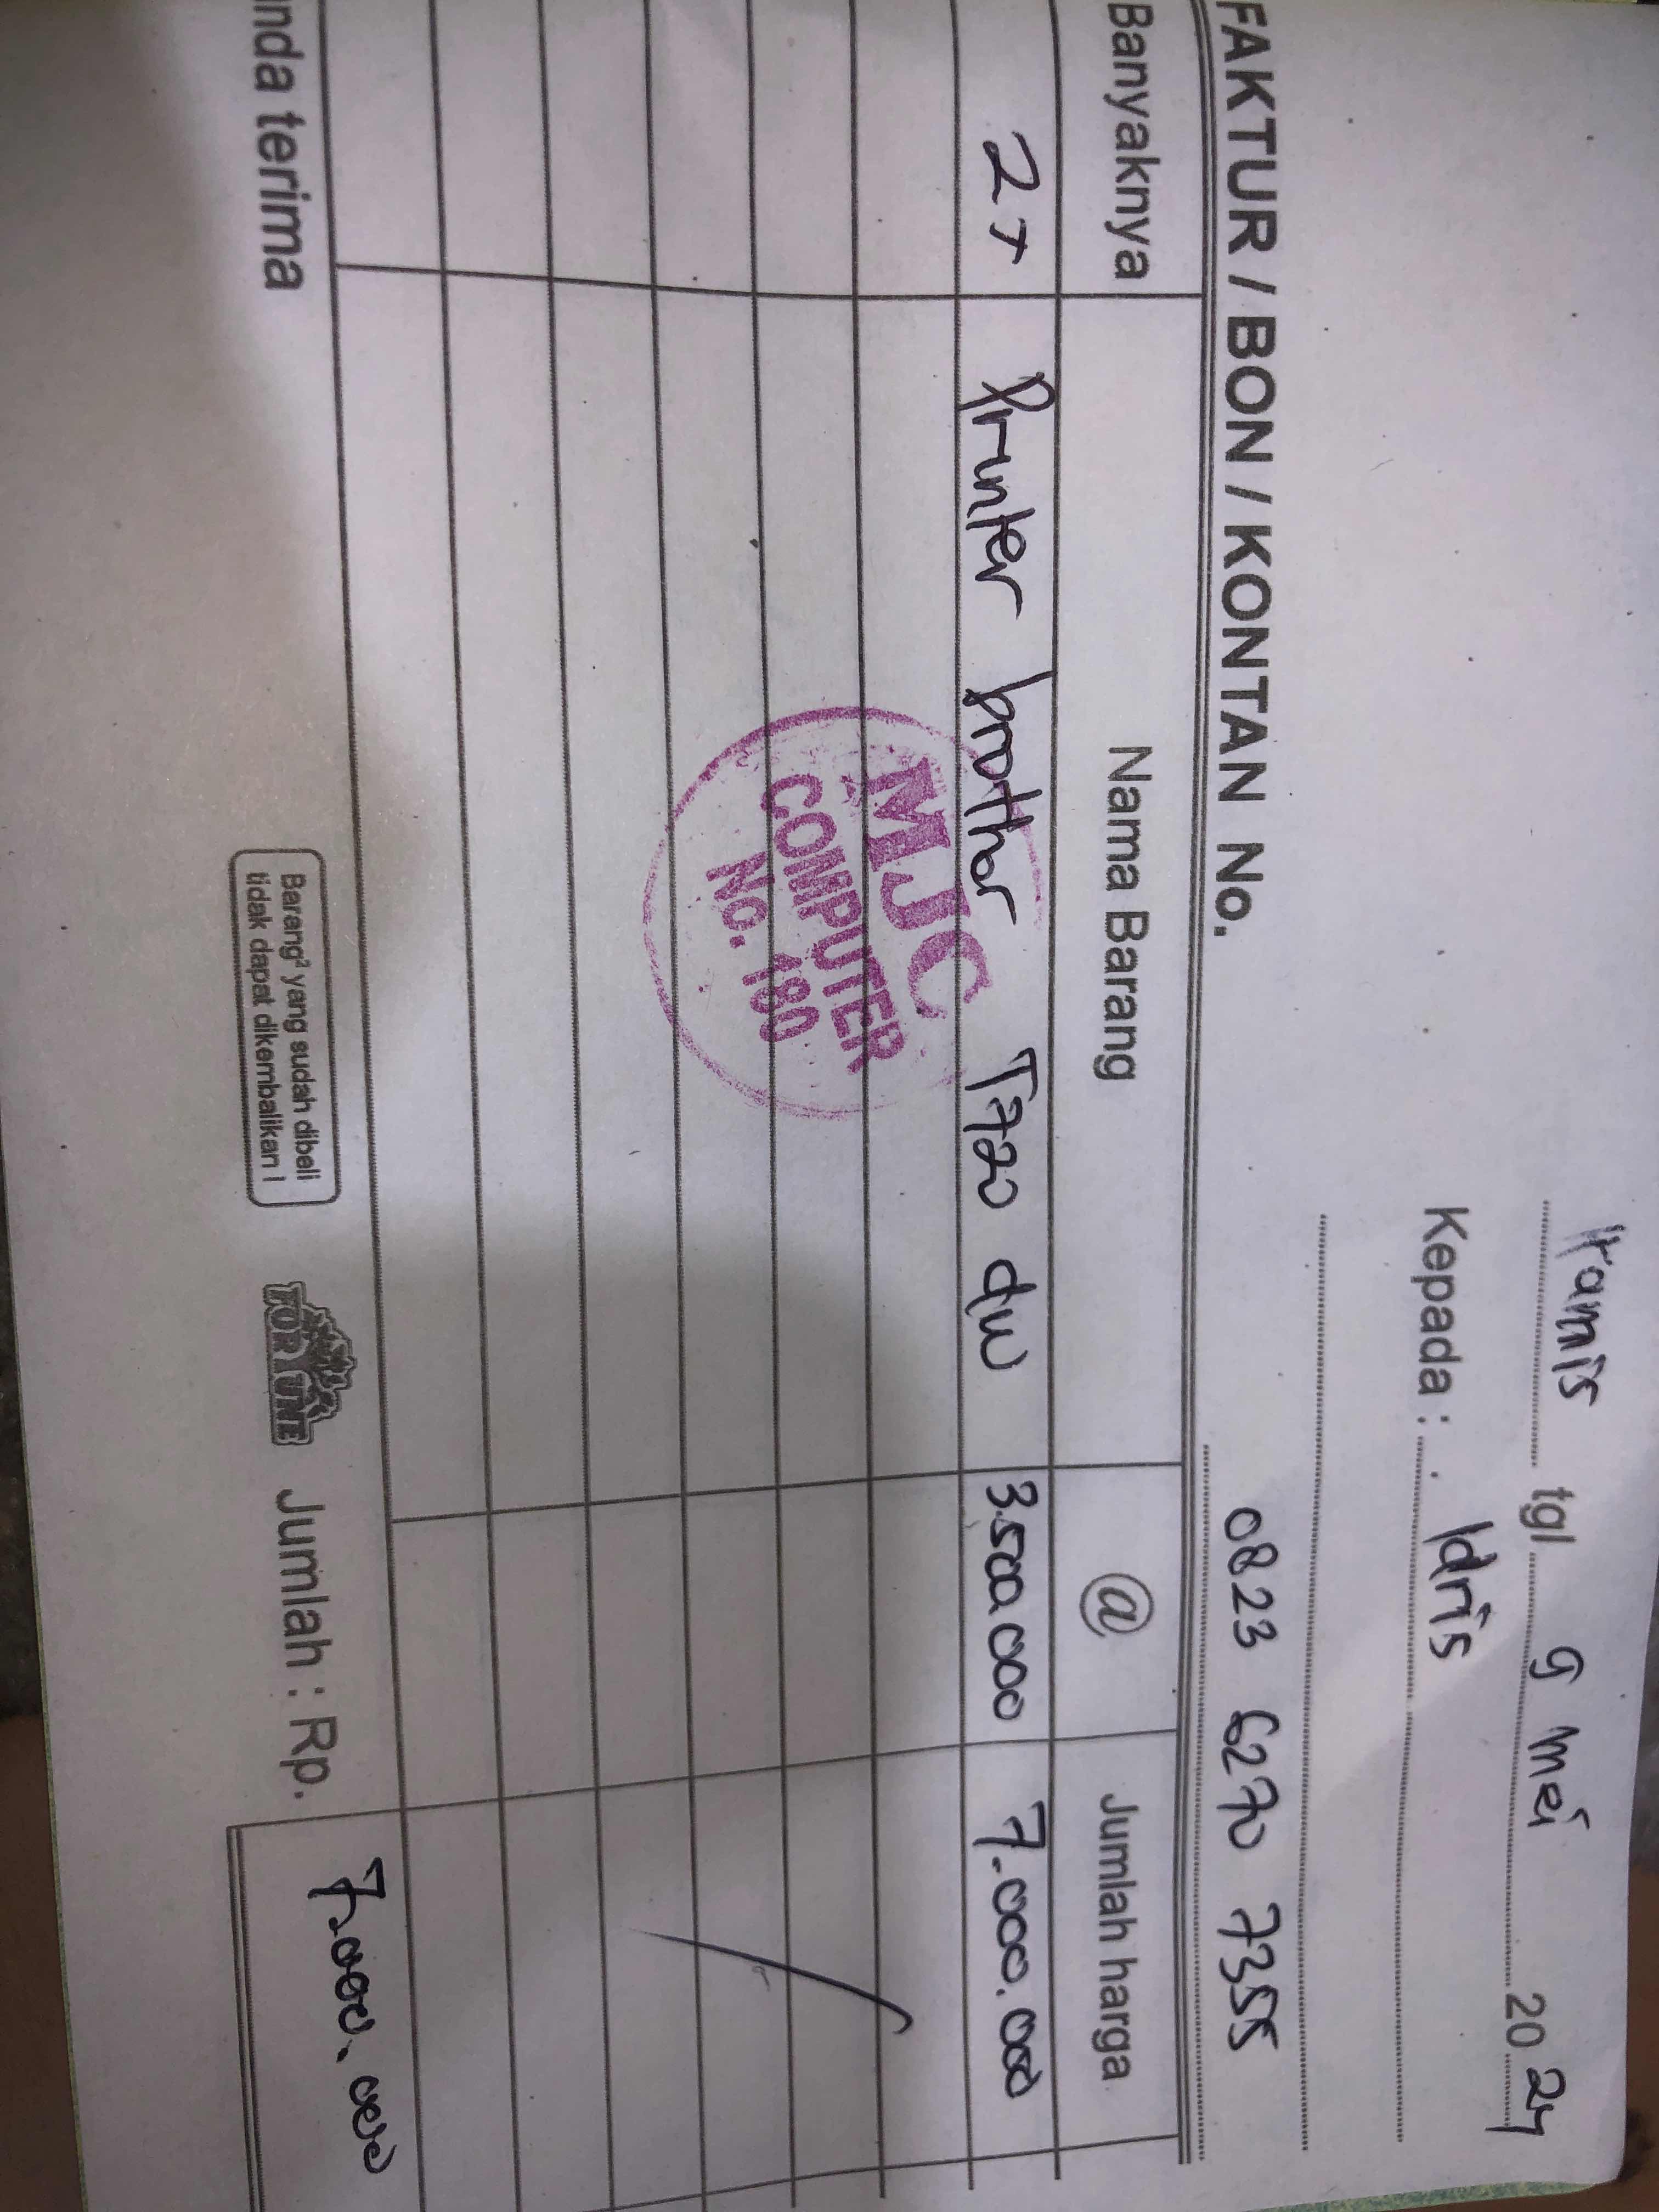 Kamis tgl 9 mei 2024
Kepada : Idris
0823 6270 7355
FAKTUR / BON / KONTAN No.
Banyaknya Nama Barang @ Jumlah harga
2x Printer brother T720 dw 3.500.000 7.000.000
MJC
COMPUTER
No. 180
nda terima
Barang² yang sudah dibeli
tidak dapat dikembalikan !
FORTUNE
Jumlah : Rp. 7.000.000